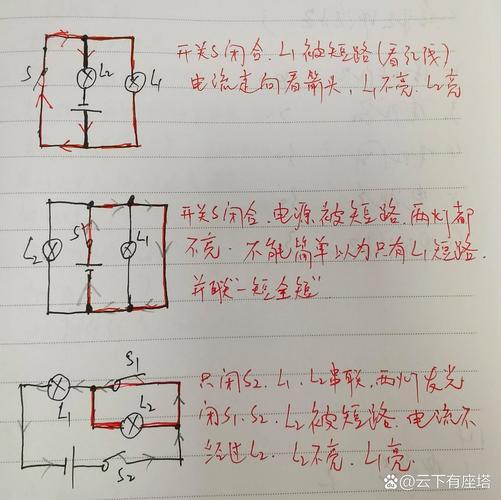 开关S闭合.L1被短路(看红线)
电流走向看箭头,L1不亮.L2亮
S
L2
L1
开关S闭合.电源被短路.两灯都
不亮.不能简单以为只有L1短路.
并联"一短全短"
L2
S
L1
只闭S2.L1.L2串联.两灯发光
闭S1.S2.L2被短路.电流不
经过L2.L2不亮.L1亮.
S1
L1
L2
S2
@云下有座塔